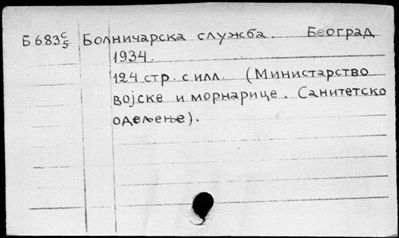 Б683 с/5 Болничарска служба. Београд
1934.
124 стр. с илл. (Министарство
војске и морнарице. Санитетско
одељење).